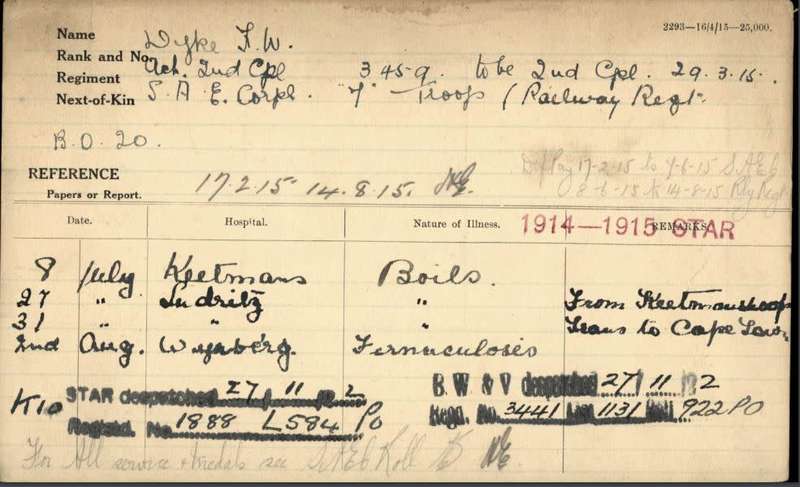 2293—16/4/15—25,000.
Name Dyke F.W.
Rank and No. Act. 2nd Cpl 3459. to be 2nd Cpl. 29.3.15.
Regiment S.A.E. Corps. Troops (Railway Regt.
Next-of-Kin
B.O. 20.
REFERENCE
Papers or Report. 17.2.15 14.8.15.
17-2-15 to 7-6-15 S.A.E.C
8-6-15 to 14-8-15 Rly Regt
Date. Hospital. Nature of Illness. REMARKS
1914—1915 STAR
8 July Keetmans Boils.
27 " Ludritz " From Keetmanshoop
31 " " " Trans to Cape Town
2nd Aug. Wynberg. Furnuculosis
K10 STAR despatched 27/11/ 2
Registd. No. 1888 L584 PO
B.W & V despatched 27/11/ 2
Regd. No. 3441 1131 922 PO
For All service & medals see SAEC Roll